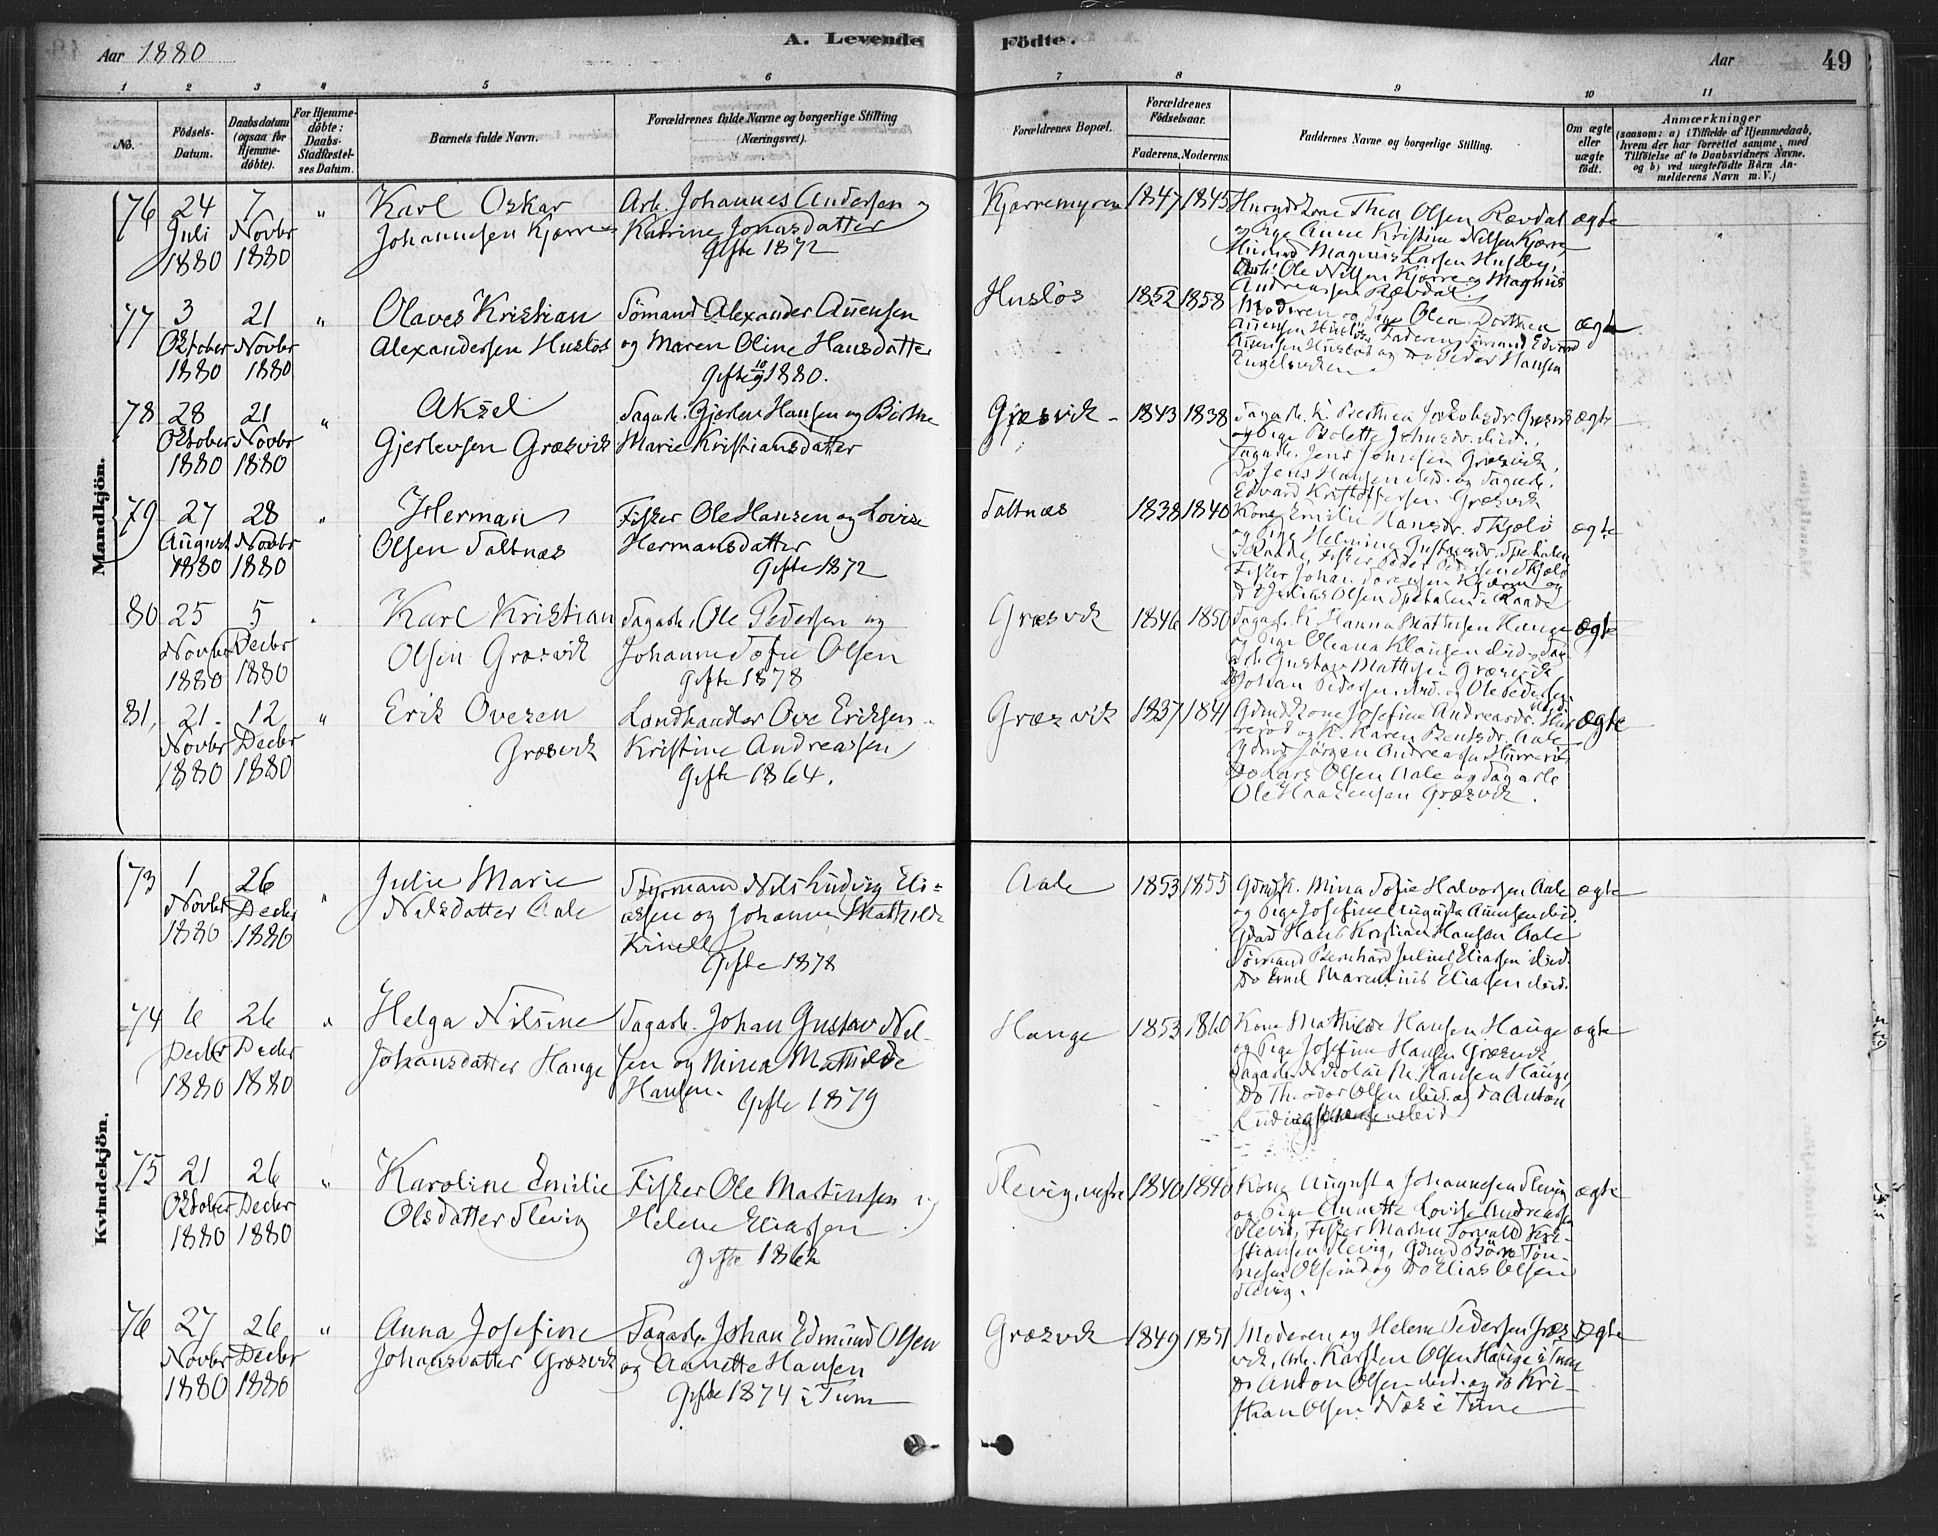 Aar 1880
A. Levende
Födte.
Aar
49
1 2 3 4 5 6 7 8 9 10 11
No.
Födsels-
Datum.
Daabsdatum
(ogsaa for
Hjemme-
döbte).
For Hjemme-
döbte:
Daabs-
Stadfæstel-
ses Datum.
Barnets fulde Navn.
Forældrenes fulde Navne og borgerlige Stilling
(Næringsvei).
Forældrenes Bopæl.
Forældrenes
Födselsaar.
Faderens.
Moderens.
Faddernes Navne og borgerlige Stilling.
Om ægte
eller
uægte
födt.
Anmærkninger
(saasom: a) i Tilfælde af Hjemmedaab,
hvem der har forrettet samme, med
Tilföielse af to Daabsvidners Navne.
og b) ved uægtefödte Börn An-
melderens Navn m. V.)
Mandkjön.
76
24
Juli
1880
7
Novbr
1880
"
Karl Oskar
Johannesen Kjærre
Arb. Johannes Andersen og
Katrine Jonasdatter
Gifte 1872
Kjærremyren
1847
1845
Thea Olsen Rævdal
og Pige Anne Kristine Nilsen Kjærre
Magnus Larsen Huseby,
Arb. Ole Nilsen Kjærre og Magnus
Andreassen Rævdal.
ægte
77
3
Oktober
1880
21
Novbr
1880
"
Olaves Kristian
Alexandersen Huslös
Sömand Alexander Auensen
og Maren Oline Hansdatter
Gifte 10/9 1880.
Huslös
1852
1858
Moderen og Pige Olea Dorthea
Auensen Huslös, Faderen, Sömand Edvard
Auensen Huslös og Do Peder Hansen
Engelsviken
ægte
78
28
Oktober
1880
21
Novbr
1880
"
Aksel
Gjerlevsen Græsvik
Dagarb. Gjerlev Hansen og Berthe
Marie Kristiansdatter
Græsvik
1843
1838
Dagarb. K. Berthea Jakobsdr. Græsvik
og Pige Bolette Johnsdr. ibid.,
Dagarb. Jens Jensen Græsvik,
Do Jens Hansen ibid. og Dagarb.
Edvard Kristoffersen Græsvik
ægte
79
27
August
1880
28
Novbr
1880
"
Herman
Olsen Saltnæs
Fisker Ole Hansen og Lovise
Hermansdatter
Gifte 1872
Saltnæs
1838
1840
Kone Emilie Hansdr. Skjælö
og Pige Helmine Gustavsdr. Spetalen
i Raade, Fisker Peder Pedersen Skjælö
Fisker Johan Sörensen og
Do Julius Olsen Spetalen i Raade
ægte
80
25
Novbr
1880
5
Decbr
1880
"
Karl Kristian
Olsen Græsvik
Dagarb. Ole Pedersen og
Johanne Sofie Olsen
Gifte 1878
Græsvik
1846
1850
Dagarb. K. Hanna Mathisen Hauge
og Pige Oleana Klausen ibid., Dag
arb. Gustav Mathisen Græsvik
Do Johan Pedersen ibid. og Ole Pedersen
ibid.
ægte
81.
21
Novbr
1880
12
Decbr
1880
"
Erik Ovesen
Græsvik
Landhandler Ove Eriksen
Kristine Andreassen
Gifte 1864.
Græsvik
1837
1841
Gdmd Kone Josefine Andreasdr.
og K. Karen Bentsdr. Aale
Gdmd Jörgen Andreassen
Do Lars Olsen Aale og Dagarb
Ole Haagensen Græsvik.
ægte
Kvindekjön.
73
1
Novbr
1880
26
Decbr
1880
"
Julie Marie
Nilsdatter Aale
Styrmand Nils Ludvig Eli-
assen og Johanne Mathilde
Kinell
Gifte 1878
Aale
1853
1855
Gdmd K. Mina Sofie Halvorsen Aale
og Pige Josefine Augusta Auensen ibid.
Gdmd Hans Kristian Hansen Aale
Sömand Bernhard Julius Eliassen ibid.
Do Emil Marentius Eliassen ibid.
ægte
74
6
Decbr
1880
26
Decbr
1880
"
Helga Nilsine
Johansdatter Hauge
Dagarb. Johan Gustav Nil-
sen og Mina Mathilde
Hansen.
Gifte 1879
Hauge
1853
1860
Kone Mathilde Hansen Hauge
og Pige Josefine Hansen Græsvik,
Dagarb. Nikolai M. Hansen Hauge,
Do Theodor Olsen ibid. og Do Anton
Ludvig Johansen ibid
ægte
75
21
Oktober
1880
26
Decbr
1880
"
Karoline Emilie
Olsdatter Slevig
Fisker Ole Martinsen og
Helene Eliassen
Gifte 1862
Slevig, vestre
1840
1840
Kone Augusta Johannesen Slevig
og Pige Annette Lovise Andreassen
Slevig, Fisker Maren Torvald Kri-
stiansen Slevig, Gdmd Börre Tön-
nesen og Do Elias Olsen
Slevig.
ægte
76
27
Novbr
1880
26
Decbr
1880
"
Anna Josefine
Johansdatter Græsvik
Dagarb. Johan Edmund Olsen
og Annette Hansen
Gifte 1874 i Tune
Græsvik
1849
1851
Moderen og Helene Pedersen Græs-
vik, Arb. Karsten Olsen Hauge i Tune
Do Anton Olsen ibid. og Do Kri-
stian Olsen Næs i Tune
Ægte